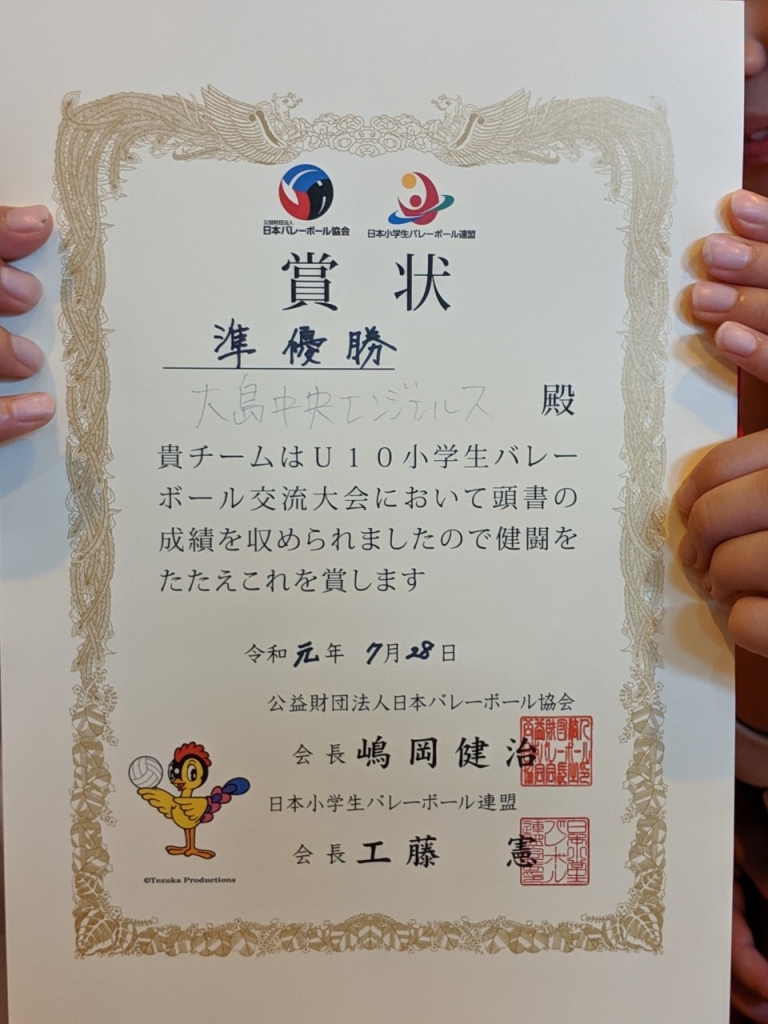 公益財団法人
日本バレーボール協会
日本小学生バレーボール連盟
賞状
準優勝
大島中央エンジェルス 殿
貴チームはU10小学生バレー
ボール交流大会において頭書の
成績を収められましたので健闘を
たたえこれを賞します
令和元年 7月28日
公益財団法人日本バレーボール協会
会長 嶋岡健治
日本小学生バレーボール連盟
会長 工藤 憲
©Tezuka Productions